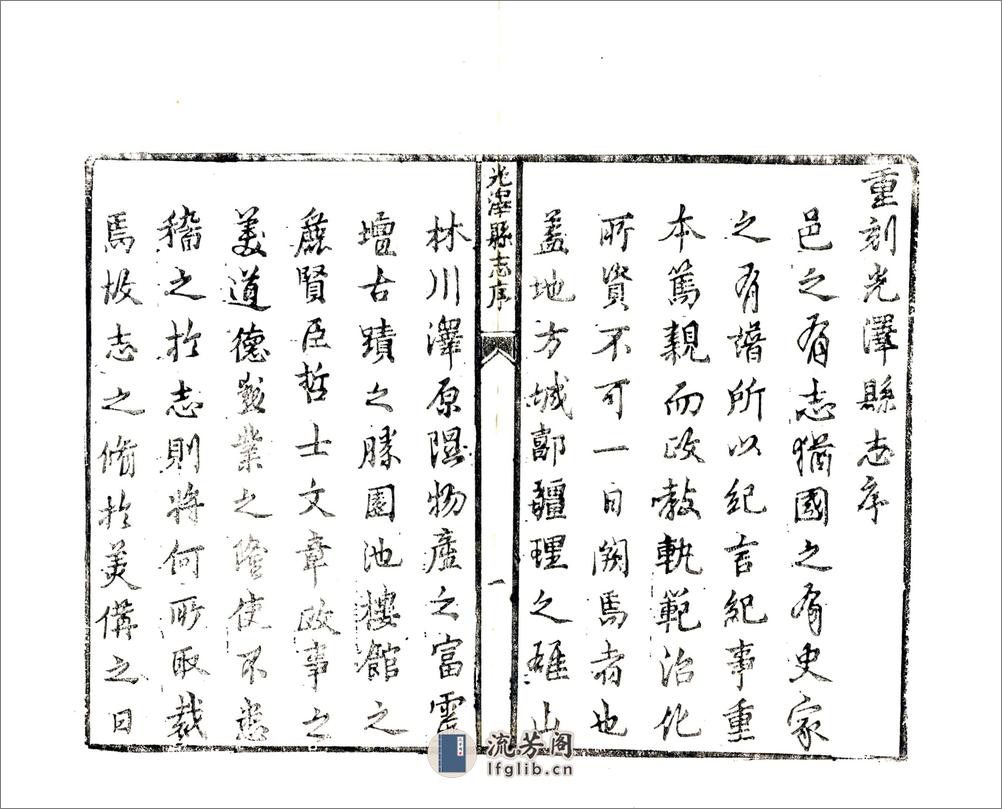 重刻光澤縣志序
邑之有志猶國之有史家
之有譜所以紀言紀事重
本篤親而政教軌範治化
所資不可一日闕焉者也
蓋地方城郭疆理之雄山
光澤縣志序
一
林川澤原隰物產之富靈
壇古蹟之勝園池樓館之
麗賢臣哲士文章政事之
美道德勲業之隆使不悉
稽之於志則將何所取裁
焉故志之脩於美備之日
流芳阁
lfglib.cn